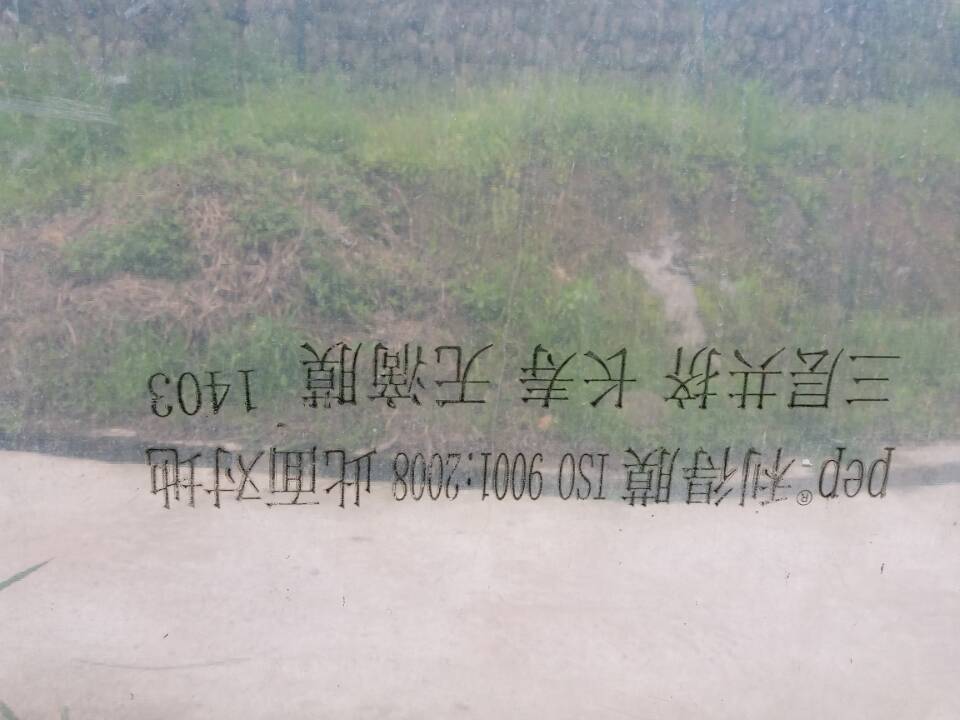 pep®利得膜 ISO 9001:2008 此面对地
三层共挤 长寿 无滴膜 1403